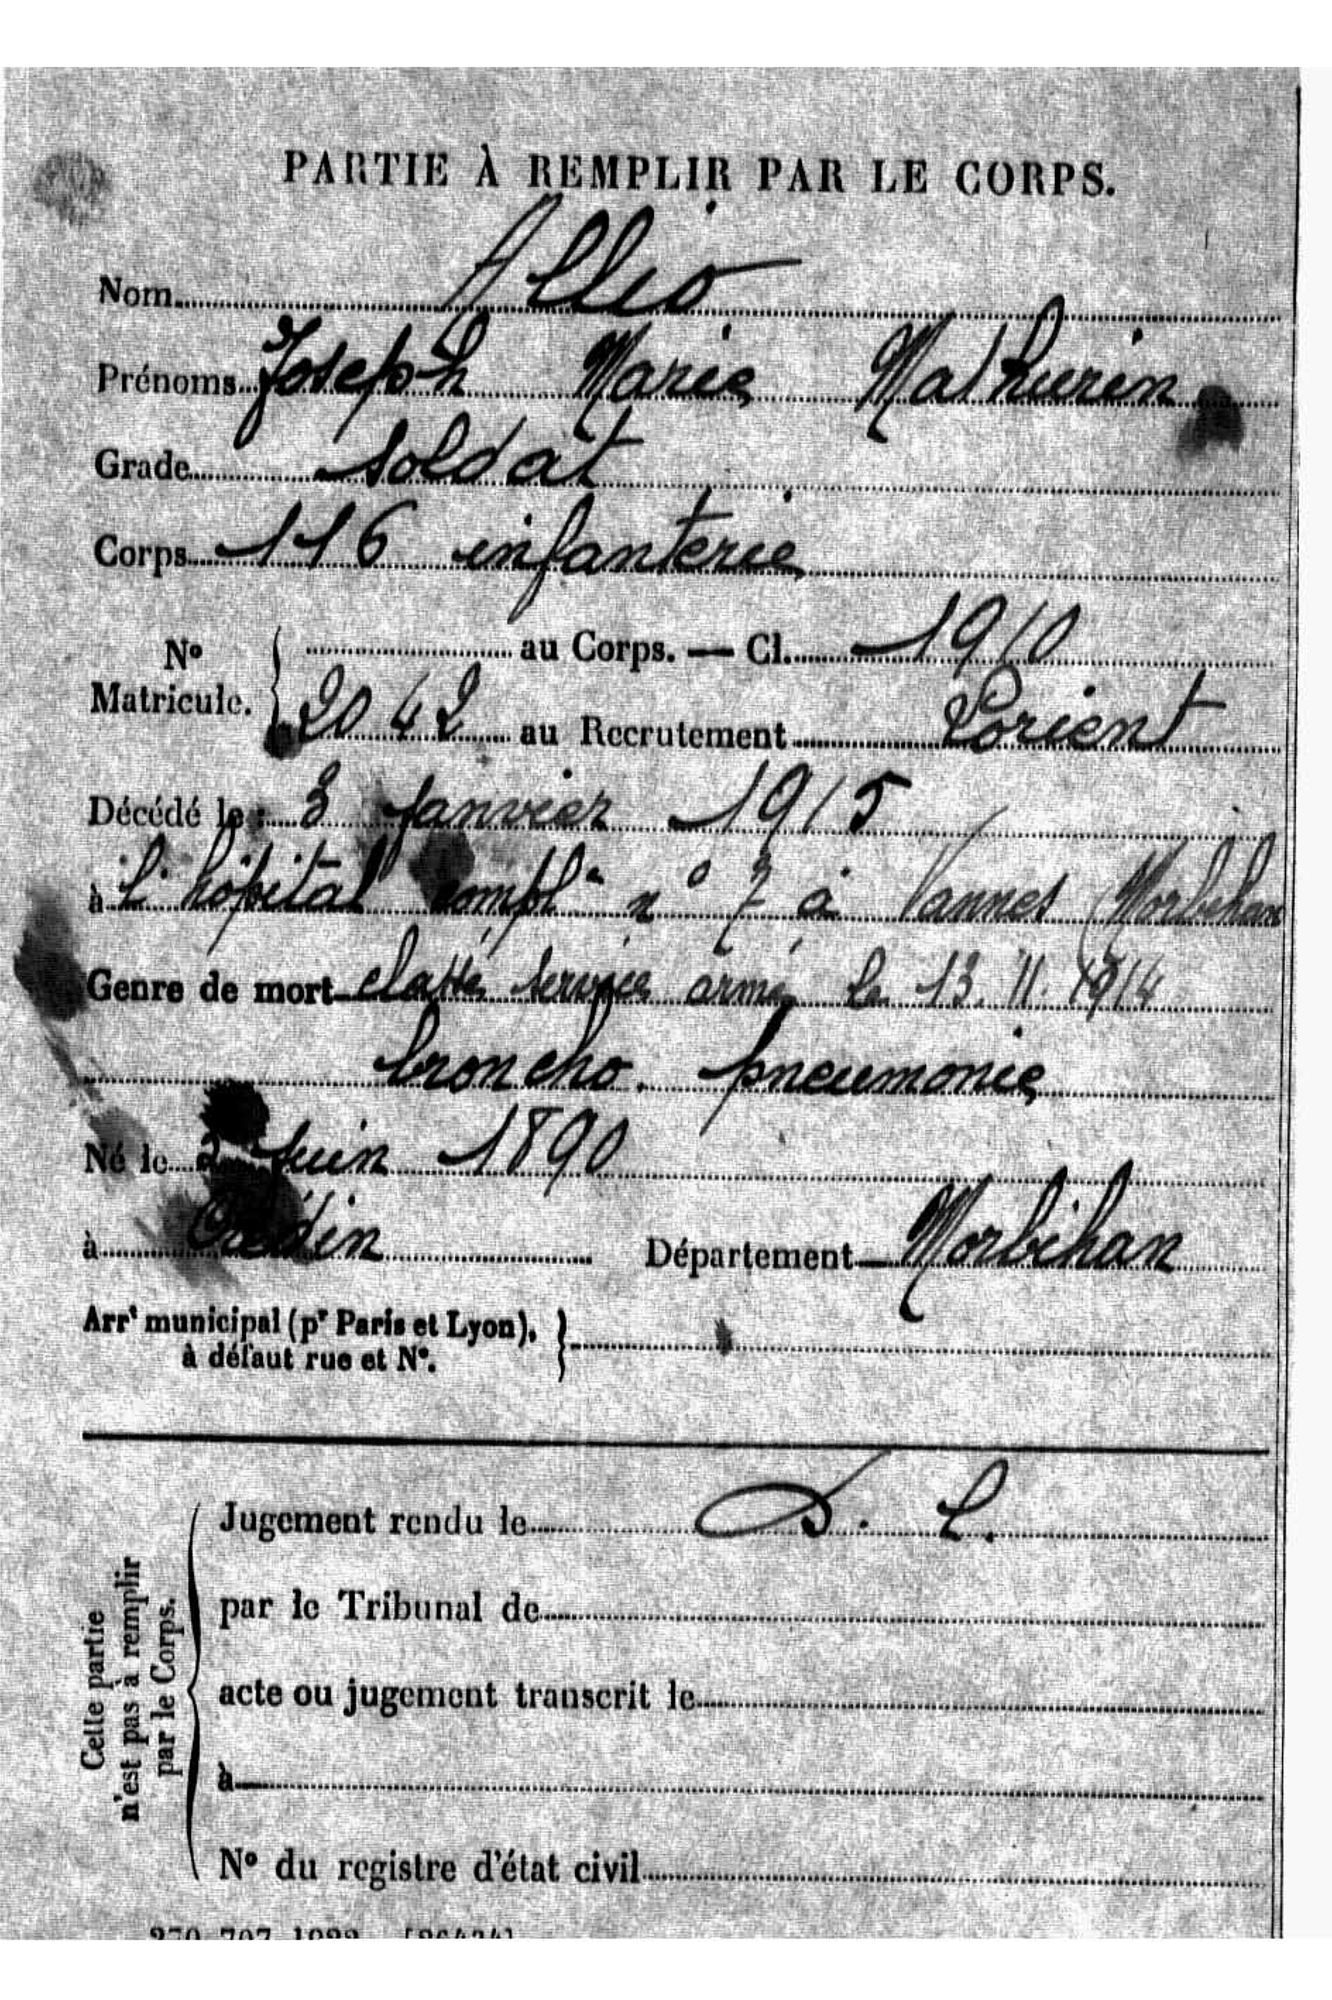 PARTIE À REMPLIR PAR LE CORPS.
Nom Allio
Prénoms Joseph Marie Mathurin
Grade soldat
Corps 116 infanterie
No Matricule. { au Corps. — Cl. 1910
2042 au Recrutement Lorient
Décédé le : 3 Janvier 1915
à l'hôpital compl n° 7 à Vannes (Morbihan
Genre de mort classé service armé le 13.11.1914
broncho. pneumonie
Né le 2 Juin 1890
à Crédin Département Morbihan
Arrt municipal (pr Paris et Lyon), }
à défaut rue et N°.
Cette partie n'est pas à remplir par le Corps.
Jugement rendu le
par le Tribunal de
acte ou jugement transcrit le
à
No du registre d'état civil